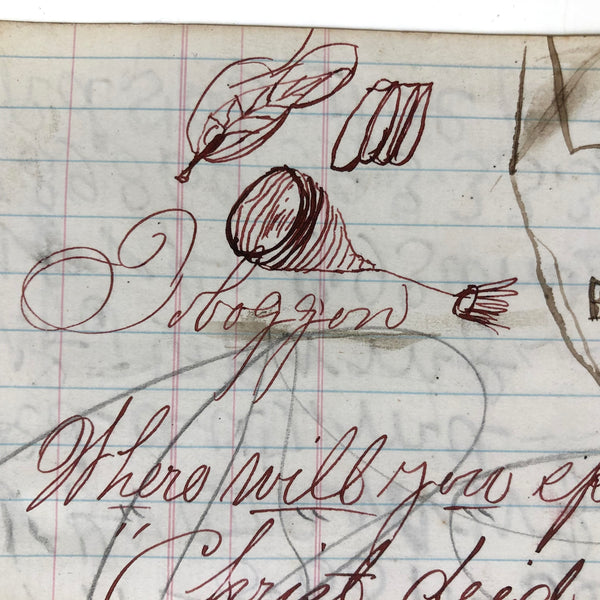 Toboggon
Where will you
"Christ died